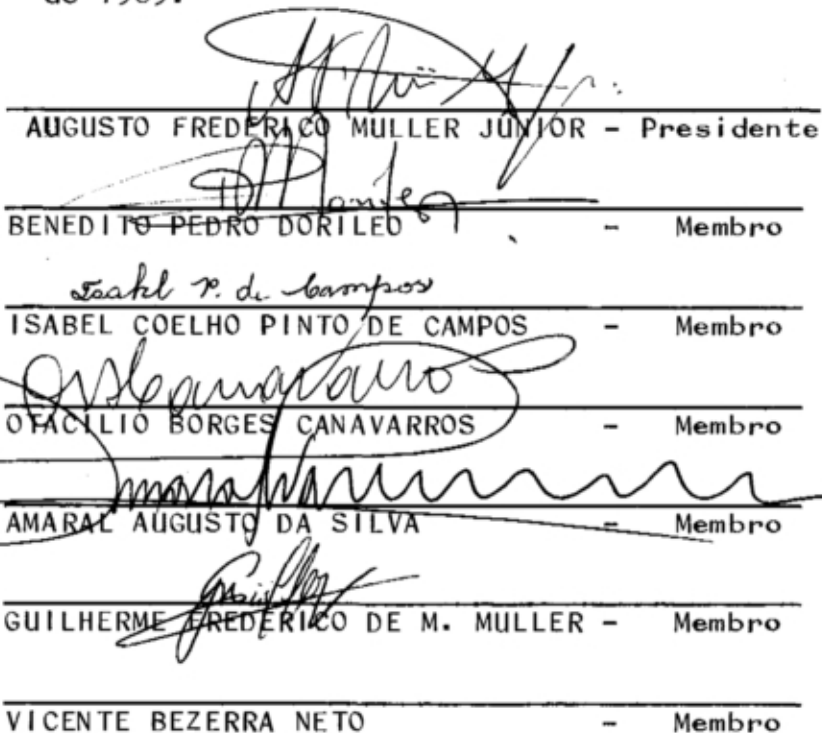 de 1989.
AUGUSTO FREDERICO MULLER JÚNIOR - Presidente
BENEDITO PEDRO DORILEO - Membro
Isabel P. de Campos
ISABEL COELHO PINTO DE CAMPOS - Membro
OTACILIO BORGES CANAVARROS - Membro
AMARAL AUGUSTO DA SILVA - Membro
GUILHERME FREDERICO DE M. MULLER - Membro
VICENTE BEZERRA NETO - Membro